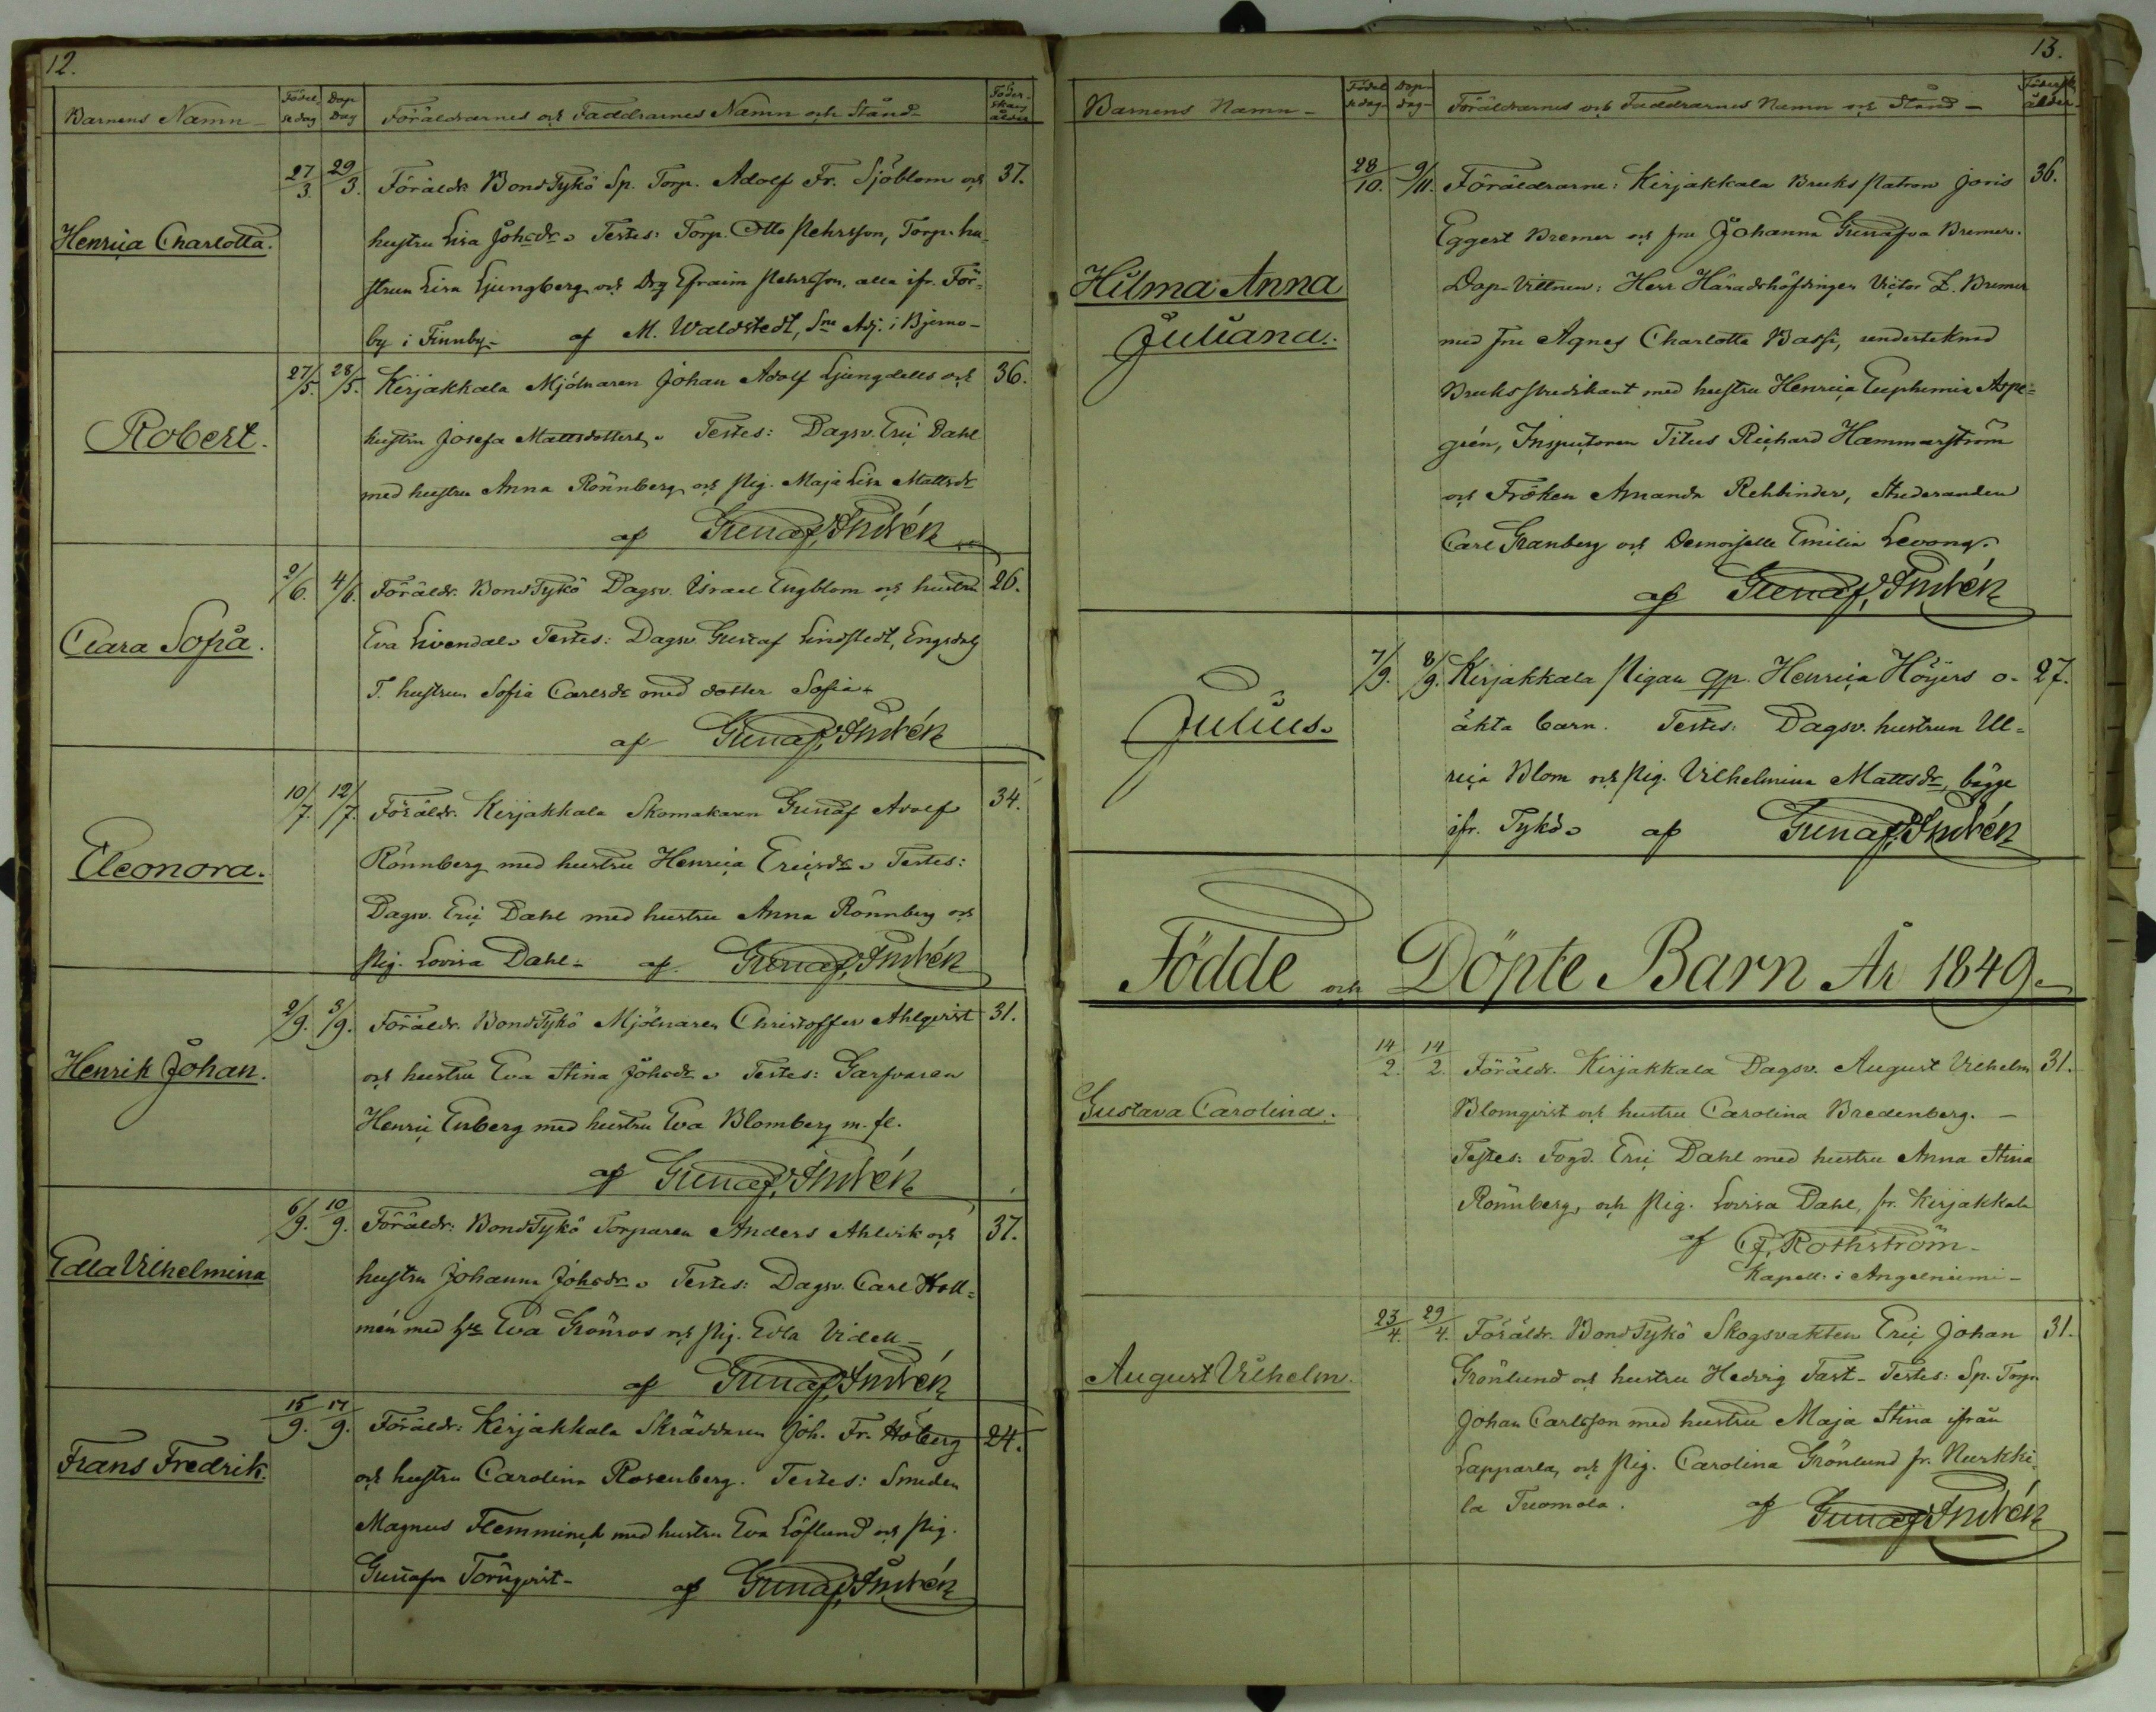 12.
Barnens Namn Födel-se dag Dop Dag Föräldrarnes och Faddrarnes Namn och Stånd Föder-skans ålder
Henrica Charlotta. 27/3. 29/3. Föräldr. BondTykö Sp. Torp. Adolf Fr. Sjöblom och 37.
hustru Lisa Johsdr. Testes: Torp. Otto Pehrsson, Torp. hu-
strun Lisa Ljungberg och Drg Efraim Pehrsson, alla ifr. För-
by i Finnby. af M. Waldstedt, Sne Adj. i Bjerno-
Robert. 27/5. 28/5. Kirjakkala Mjölnaren Johan Adolf Ljungdells och 36.
hustru Josefa Mattsdotters. Testes: Dagsv. Eric Dahl
med hustru Anna Rönnberg och Pig. Maja Lisa Mattsdr
af Gustaf
Clara Sofia. 2/6. 4/6. Föräldr. BondTykö Dagsv. Israel Engblom och hustru 26.
Eva Livendal. Testes: Dagsv. Gustaf Lindstedt,
T. hustrun Sofia Carlsdr med dotter Sofia.
af Gustaf
Eleonora. 10/7. 12/7. Föräldr. Kirjakkala Skomakaren Gustaf Adolf 34.
Rönnberg med hustru Henrica Ericsdr. Testes:
Dagsv. Eric Dahl med hustru Anna Rönnberg och
Pig. Lovisa Dahl. af Gustaf
Henrik Johan. 2/9. 3/9. Föräldr. BondTykö Mjölnaren Christoffer Ahlqvist 31.
och hustru Eva Stina Johsdr. Testes: Garfvaren
Henric Enberg med hustru Eva Blomberg m. fl.
af Gustaf
Edla Vilhelmina 6/9. 10/9. Föräldr: BondTykö Torparen Anders Ahlvik och 37.
hustru Johanna Johsdr. Testes: Dagsv. Carl Holl-
mén med Eva Grönros och Pig. Edla Videll
af Gustaf
Frans Fredrik. 15/9. 17/9. Föräldr: Kirjakkala Skräddaren Joh. Fr. Höberg 24.
och hustru Carolina Rosenberg. Testes: Smeden
Magnus Flemminck med hustru Eva Löflund och Pig.
Gustafva Törnqvist- af Gustaf
13.
Barnens Namn Födelsedag Dop-dag Föräldrarnes och Faddrarnes Namn och Stånd ålder
Hilma Anna Juliana. 28/10. 9/11. Föräldrarne: Kirjakkala Bruks Patron Joris 36.
Eggert Bremer och fru Johanna Gustafva Bremer.
Dop-Vittnen: Herr Häradshöfdingen Victor Z. Bremer
med fru Agnes Charlotta Bassi, undertecknad
Brukspredikant med hustru Henrica Euphemia Aspe-
grén, Inspectoren Titus Richard Hammarström
och Fröken Amanda Rehbinder, Studeranden
Carl Granberg och Demoiselle Emilia Levong.
af Gustaf
Julius. 7/9. 8/9. Kirjakkala Pigan qp. Henrica Höijers o- 27.
äkta barn. Testes: Dagsv. hustrun Ul-
rica Blom och Pig. Vilhelmina Mattsdr, bägge
ifr. Tykö. af Gustaf
Födde och Döpte Barn År 1849.
Gustava Carolina. 14/2. 14/2. Föräldr. Kirjakkala Dagsv. August Vilhelm 31.
Blomqvist och hustru Carolina Bredenberg. -
Testes: Fogd. Eric Dahl med hustru Anna Stina
Rönnberg, och Pig. Lovisa Dahl, fr. Kirjakkala
af Rothström-
Kapell. i Angelniemi-
August Vilhelm. 23/4. 29/4. Föräldr. BondTykö Skogsvakten Eric Johan 31.
Grönlund och hustru Hedvig Fast- Testes: Sp. Torp.
Johan Carlsson med hustru Maja Stina ifrån
Lapparla, och Pig. Carolina Grönlund fr. Nurkki-
la Tuomola. af Gustaf